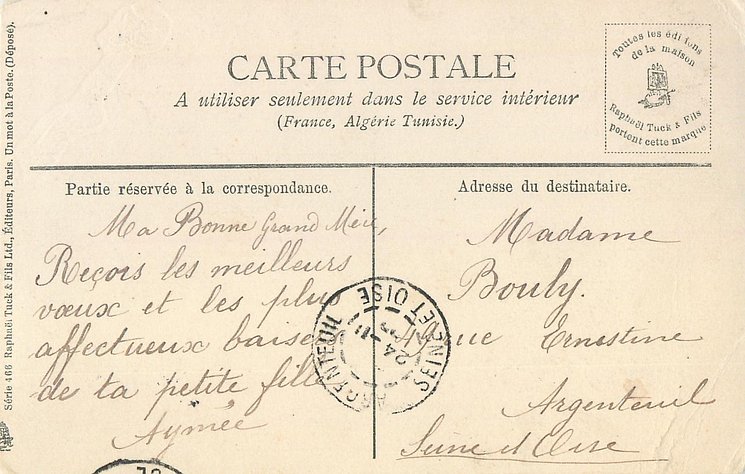 CARTE POSTALE
A utiliser seulement dans le service intérieur
(France, Algérie Tunisie.)
Toutes les édi ions
de la maison
Raphaël Tuck & Fils
portent cette marque
Série 466 Raphaël Tuck & Fils Ltd., Éditeurs, Paris. Un mot à la Poste. (Déposé).
Partie réservée à la correspondance.
Ma Bonne Grand Mère,
Reçois les meilleurs
vœux et les plus
affectueux baisers
de ta petite fille
Aymée
Adresse du destinataire.
Madame
Bouly.
Ernestine
Argenteuil
Seine et Oise
ARGENTEUIL
SEINE ET OISE
24